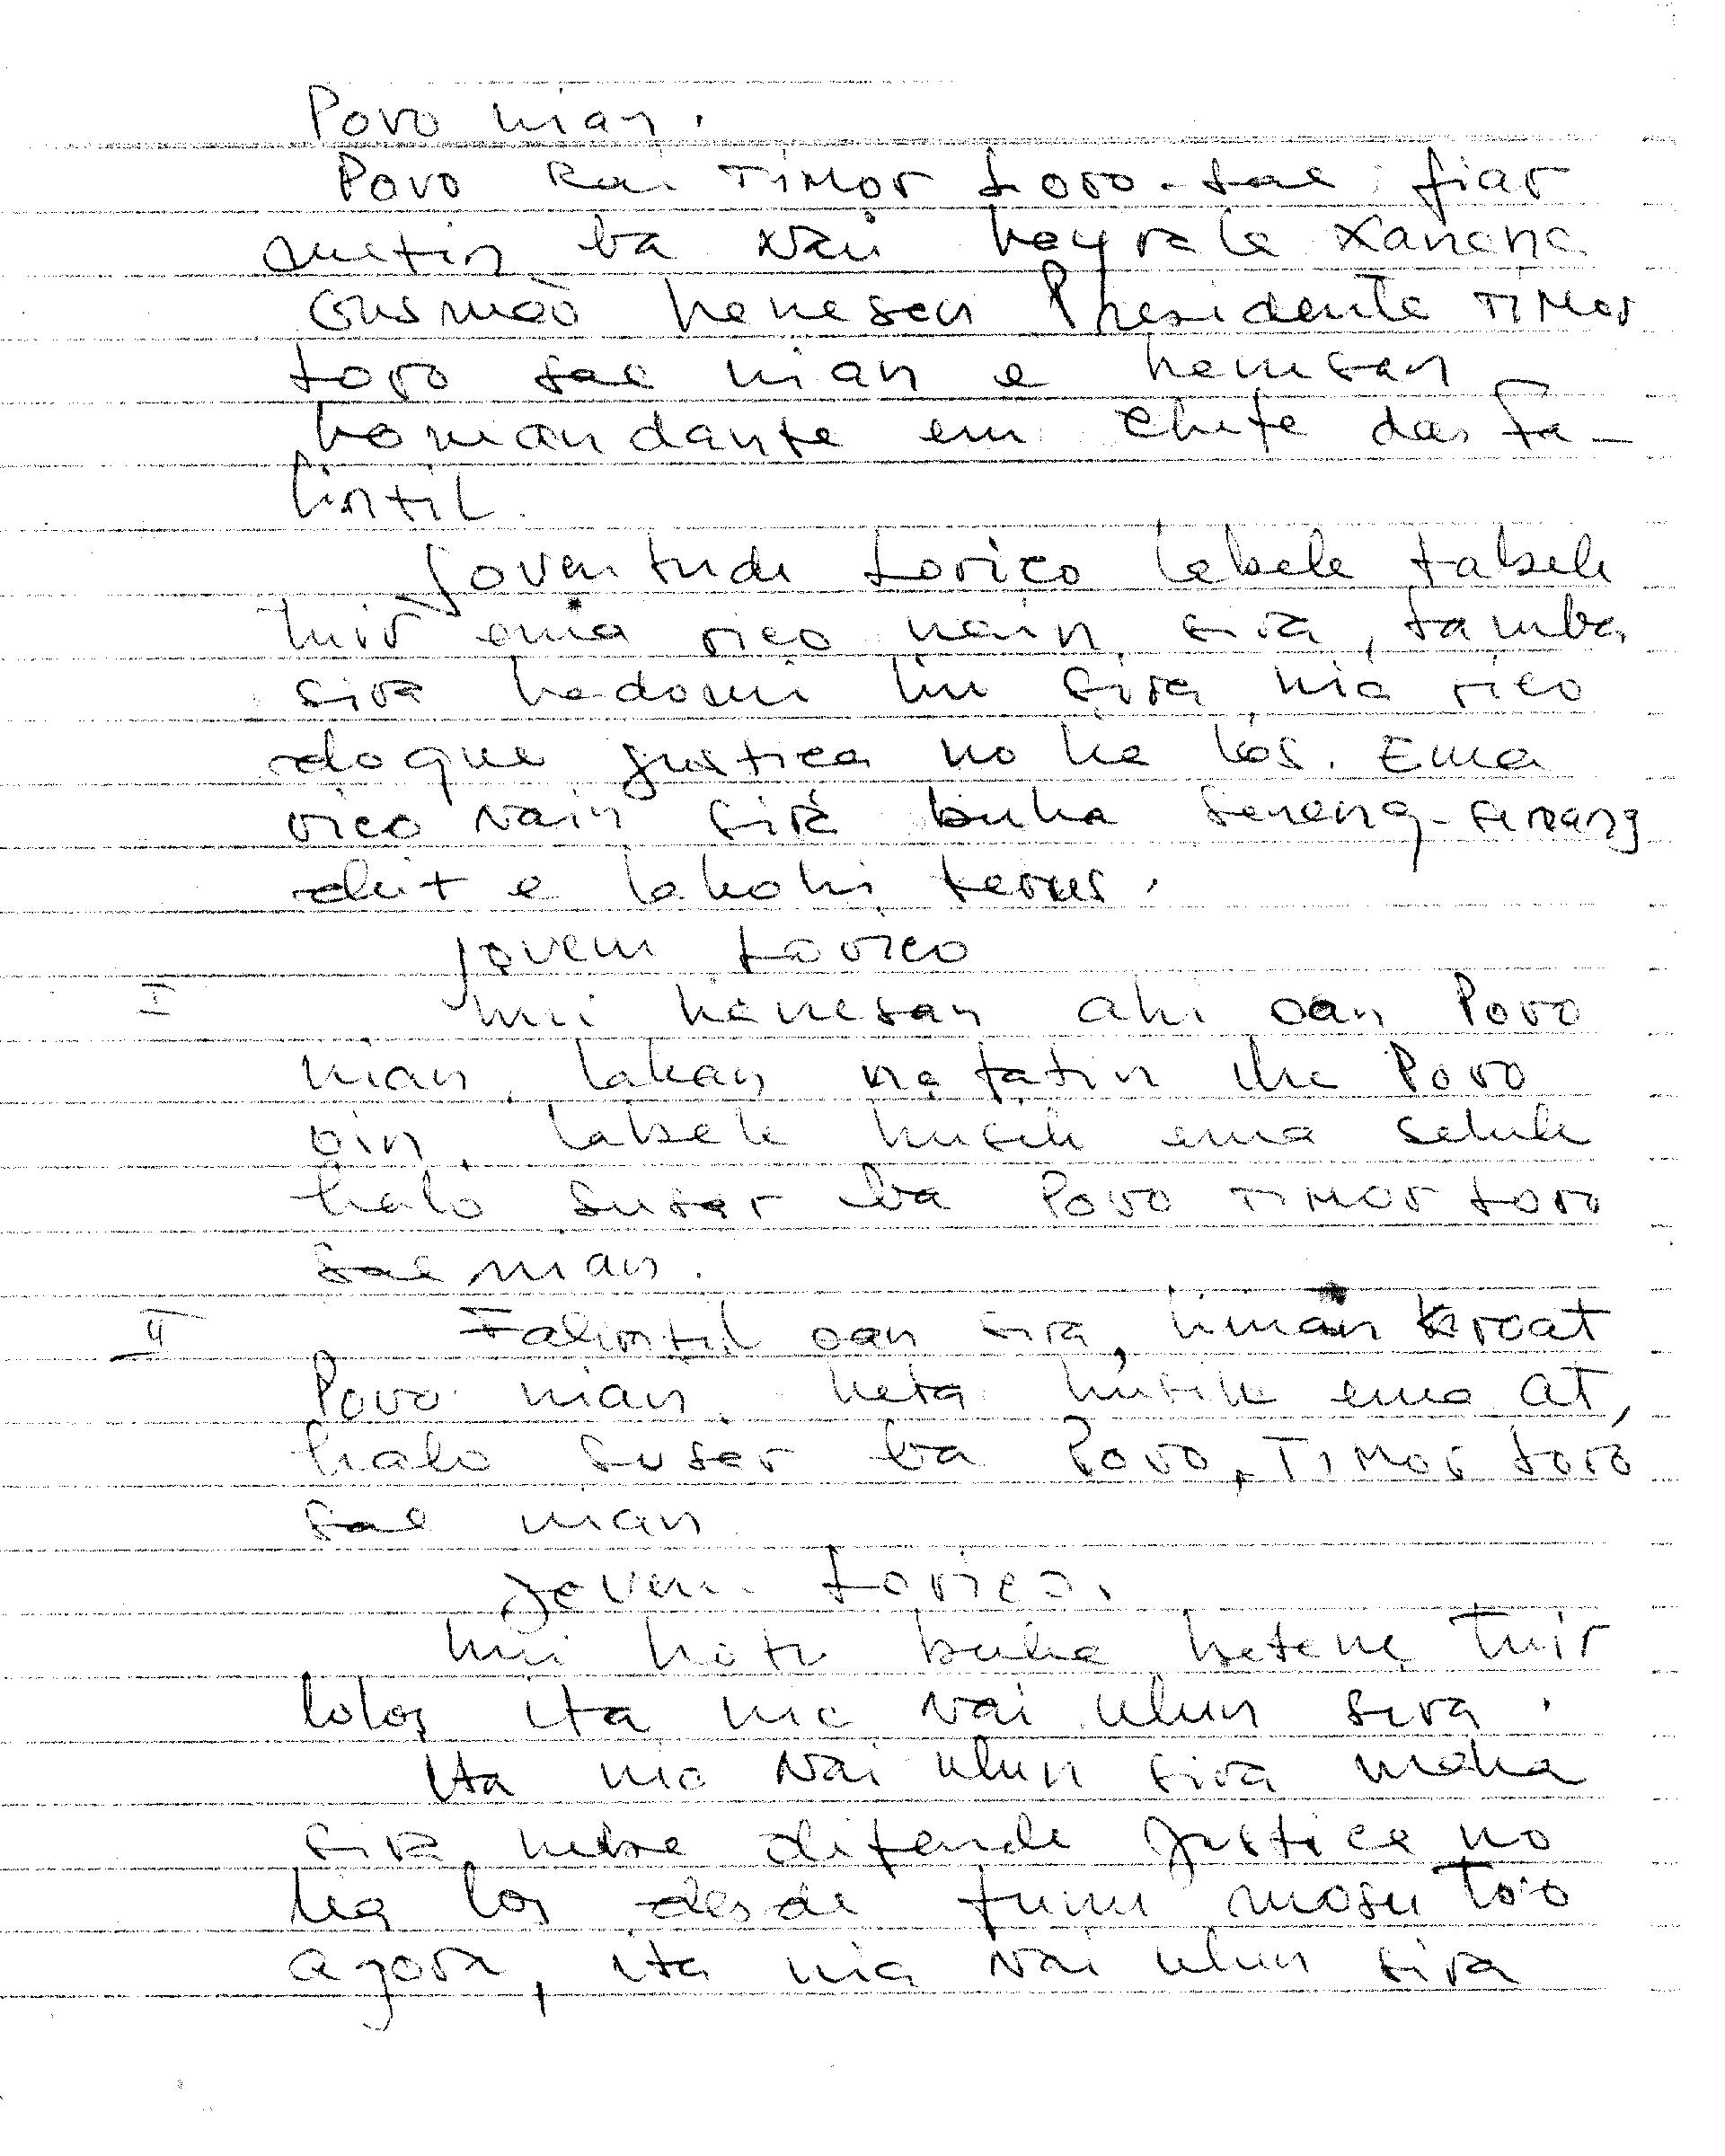 Povo nian.
Povo Rai TiMor Loro-sae fiar
metin ba Nai Keyrala Xanana
Gusmão hanesan Presidente TiMor
Loro sae nian e hanesan
Komandante em Chefe das Fa-
lintil.
Joventude Lorico labele
tuir ema rico nain sira, tamba
sira hadomi liu sira nia rico
doque justica no lia los. Ema
rico nain sira buka senang-senang
deit e lakohi terus.
Jovem Lorico
I imi hanesan ahi oan Povo
nian, lakan nafatin iha Povo
oin, labele husik ema seluk
halo susar ba Povo TiMor Loro
sae nian.
II Falintil oan sira, liman kroat
Povo nian, keta husik ema at,
halo susar ba Povo, TiMor Loro
sae nian
Jovem Lorico,
imi hotu buka hatene tuir
lolos ita nia Nai ulun sira.
Ita nia Nai ulun sira maka
sira nebe difende Justica no
lia los desde funu mosu to'o
agora, ita nia Nai ulun sira